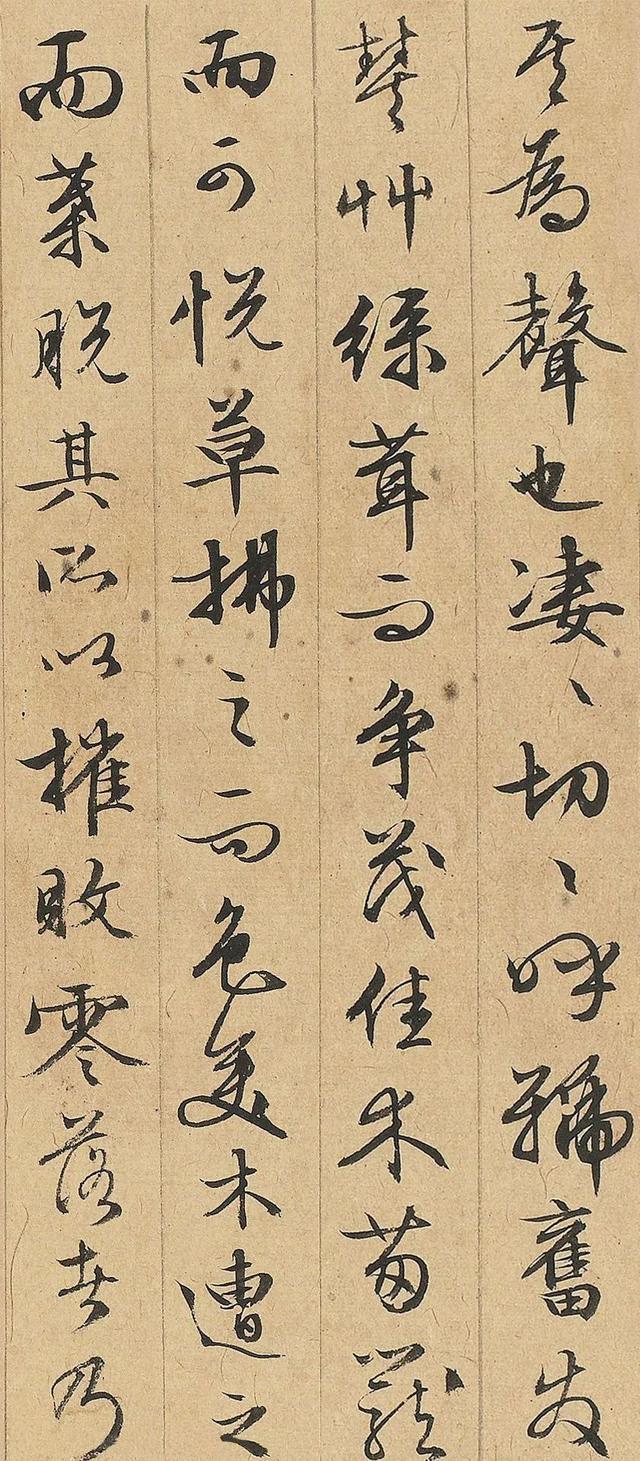 其為聲也凄〻切〻呼號奮發
豐艸緑茸而爭茂佳木葱蘢
而可悅草拂之而色變木遭之
而葉脫其所以摧敗零落者乃